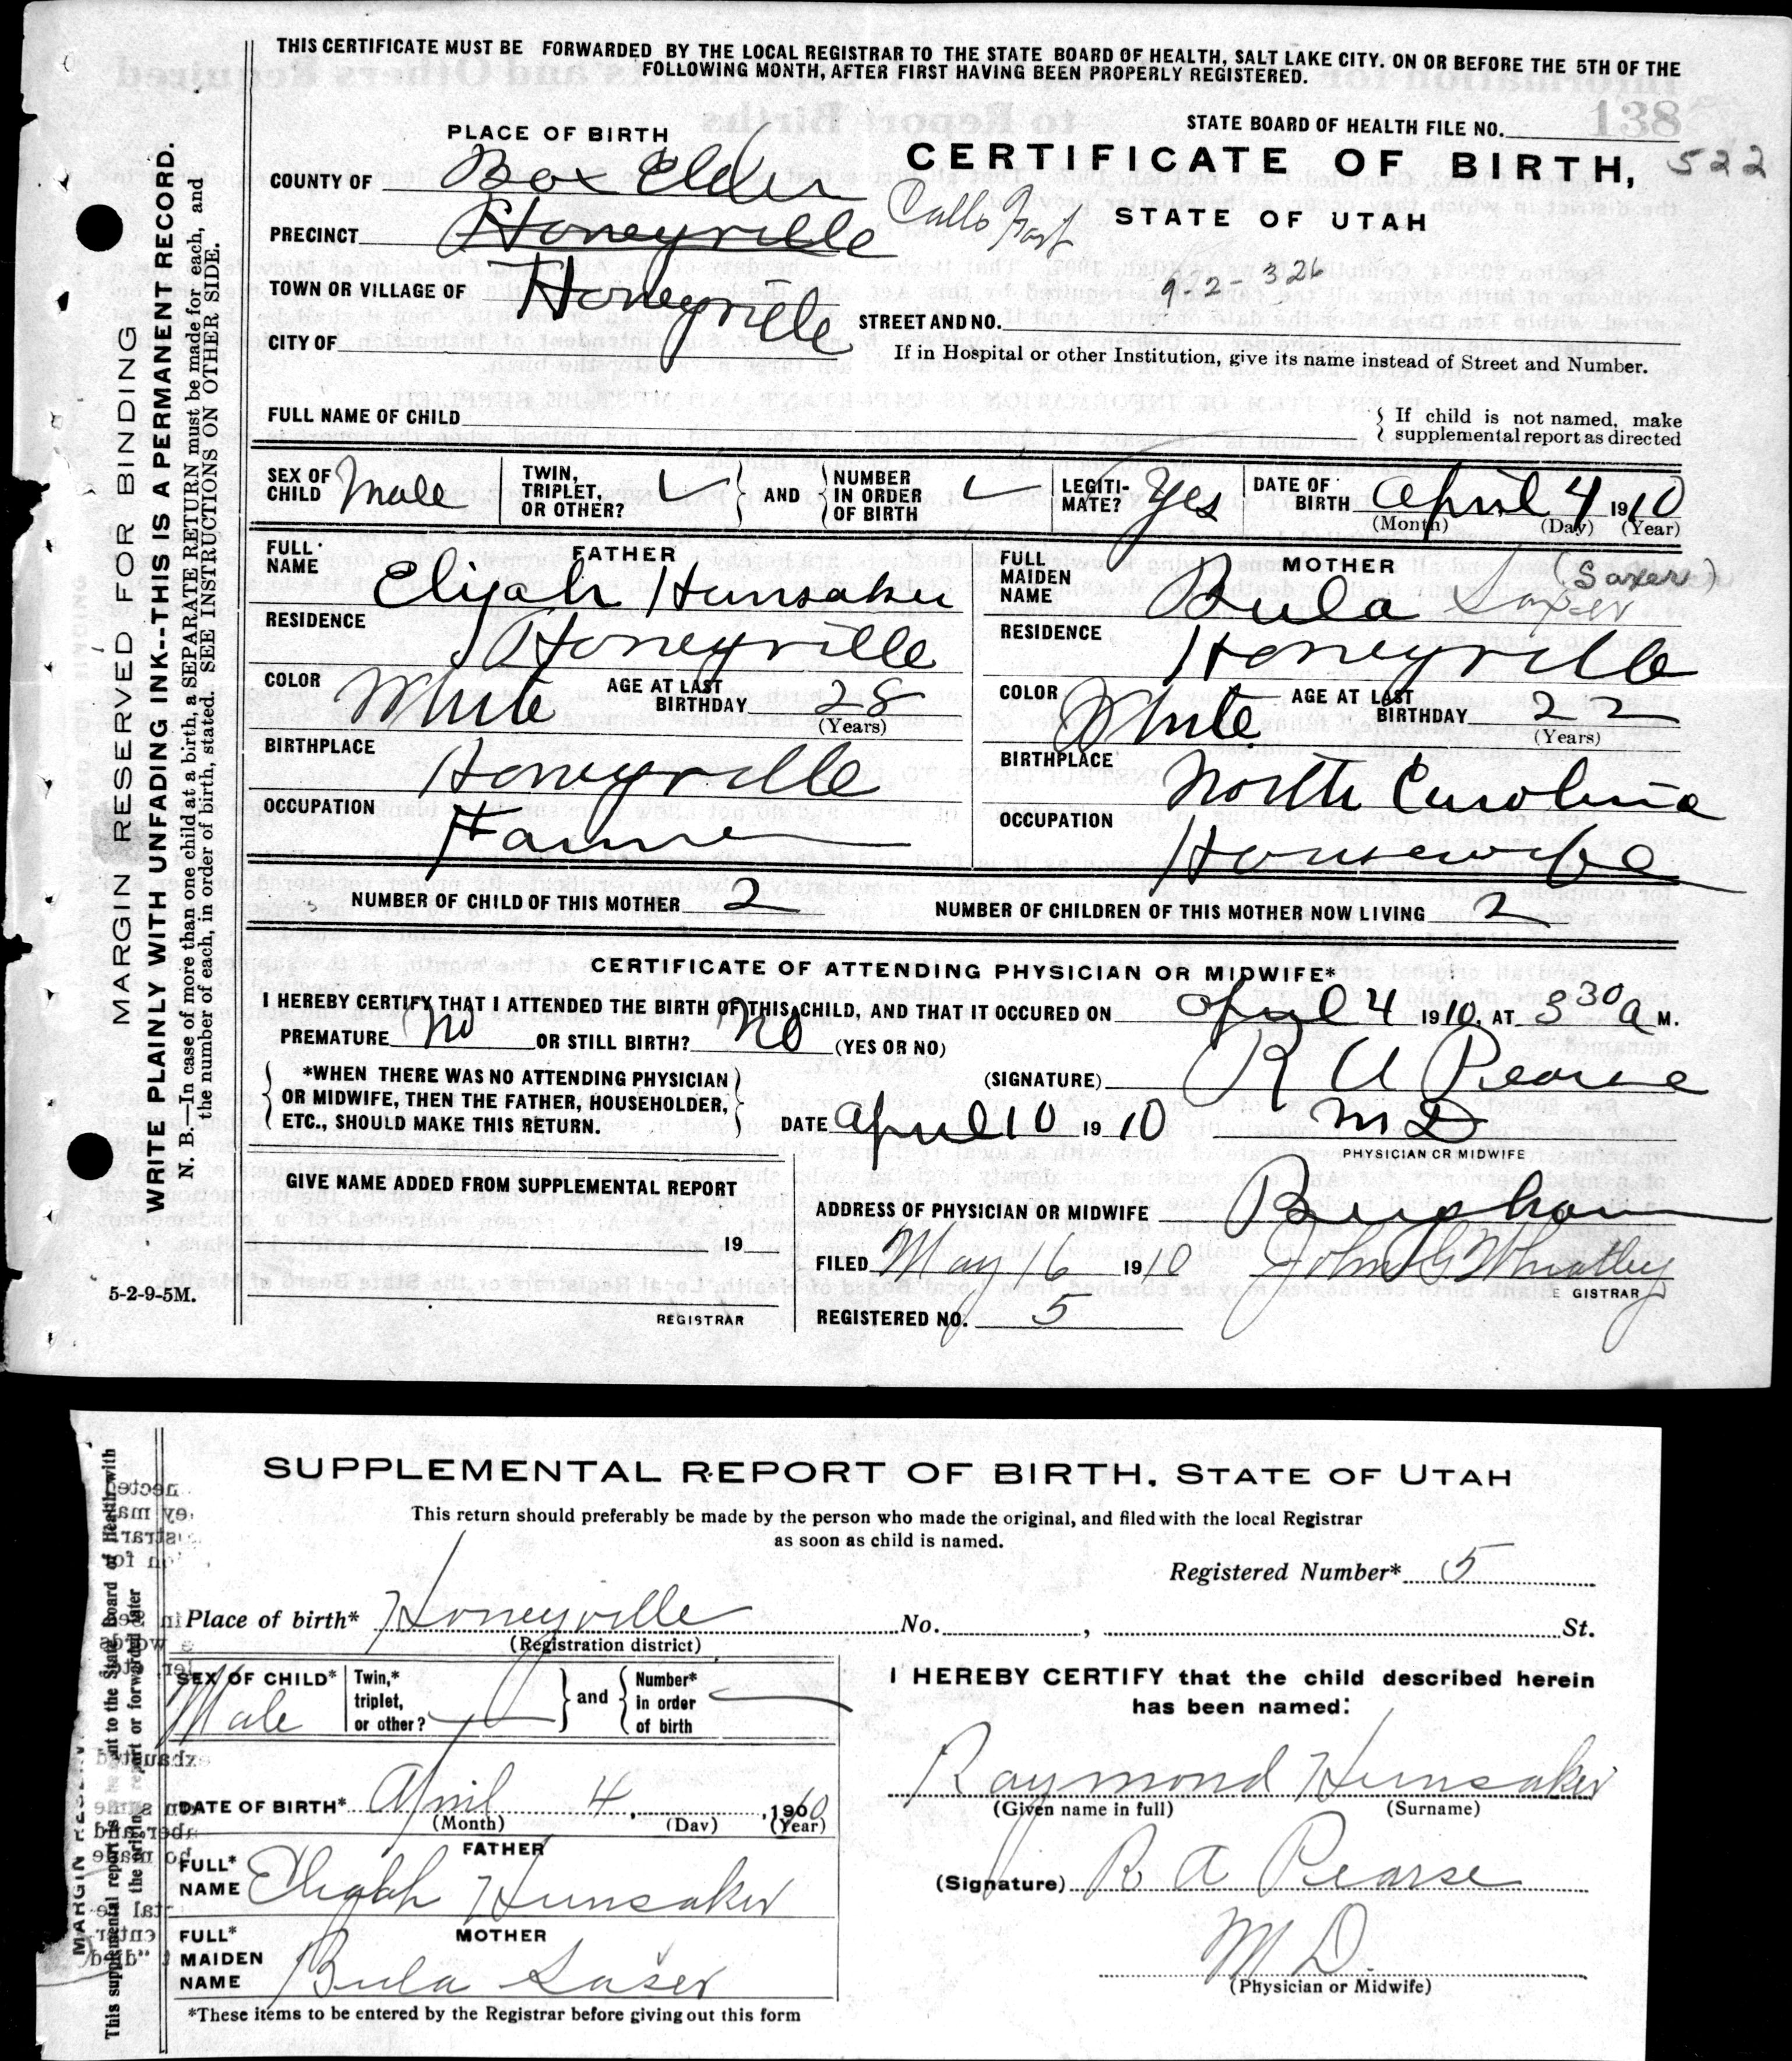 THIS CERTIFICATE MUST BE FORWARDED BY THE LOCAL REGISTRAR TO THE STATE BOARD OF HEALTH, SALT LAKE CITY. ON OR BEFORE THE 5TH OF THE
FOLLOWING MONTH, AFTER FIRST HAVING BEEN PROPERLY REGISTERED.
STATE BOARD OF HEALTH FILE NO. 138
PLACE OF BIRTH
CERTIFICATE OF BIRTH, 522
STATE OF UTAH
COUNTY OF Box Elder
PRECINCT Honeyville Calls Fort
TOWN OR VILLAGE OF Honeyville
92-326
CITY OF
STREET AND NO.
If in Hospital or other Institution, give its name instead of Street and Number.
FULL NAME OF CHILD
If child is not named, make
supplemental report as directed
SEX OF CHILD Male
TWIN, TRIPLET, OR OTHER?
AND
NUMBER IN ORDER OF BIRTH
LEGITI-MATE? Yes
DATE OF BIRTH April 4 1910
(Month) (Day) (Year)
FATHER
FULL NAME Elijah Hunsaker
RESIDENCE Honeyville
COLOR White AGE AT LAST BIRTHDAY 28
(Years)
BIRTHPLACE Honeyville
OCCUPATION Farmer
MOTHER
FULL MAIDEN NAME Bula Saxer (Saxer)
RESIDENCE Honeyville
COLOR White AGE AT LAST BIRTHDAY 22
(Years)
BIRTHPLACE North Carolina
OCCUPATION Housewife
NUMBER OF CHILD OF THIS MOTHER 2 NUMBER OF CHILDREN OF THIS MOTHER NOW LIVING 2
CERTIFICATE OF ATTENDING PHYSICIAN OR MIDWIFE*
I HEREBY CERTIFY THAT I ATTENDED THE BIRTH OF THIS CHILD, AND THAT IT OCCURED ON April 4 1910, AT 8 30 a M.
PREMATURE No OR STILL BIRTH? No (YES OR NO)
*WHEN THERE WAS NO ATTENDING PHYSICIAN
OR MIDWIFE, THEN THE FATHER, HOUSEHOLDER,
ETC., SHOULD MAKE THIS RETURN.
(SIGNATURE) R A Pearse
DATE April 10 1910 M D
PHYSICIAN OR MIDWIFE
GIVE NAME ADDED FROM SUPPLEMENTAL REPORT
19
REGISTRAR
ADDRESS OF PHYSICIAN OR MIDWIFE Brigham
FILED May 16 1910 John G Wheatley
GISTRAR
REGISTERED NO. 5
MARGIN RESERVED FOR BINDING
WRITE PLAINLY WITH UNFADING INK--THIS IS A PERMANENT RECORD.
N. B.—In case of more than one child at a birth, a SEPARATE RETURN must be made for each, and
the number of each, in order of birth, stated. SEE INSTRUCTIONS ON OTHER SIDE.
5-2-9-5M.
SUPPLEMENTAL REPORT OF BIRTH, STATE OF UTAH
This return should preferably be made by the person who made the original, and filed with the local Registrar
as soon as child is named.
Registered Number* 5
Place of birth* Honeyville No. , St.
(Registration district)
SEX OF CHILD* Male
Twin,* triplet, or other?
and
Number* in order of birth
DATE OF BIRTH* April 4, 1910
(Month) (Day) (Year)
FATHER
FULL* NAME Elijah Hunsaker
MOTHER
FULL* MAIDEN NAME Bula Saxer
*These items to be entered by the Registrar before giving out this form
I HEREBY CERTIFY that the child described herein
has been named:
Raymond Hunsaker
(Given name in full) (Surname)
(Signature) R A Pearse
M D.
(Physician or Midwife)